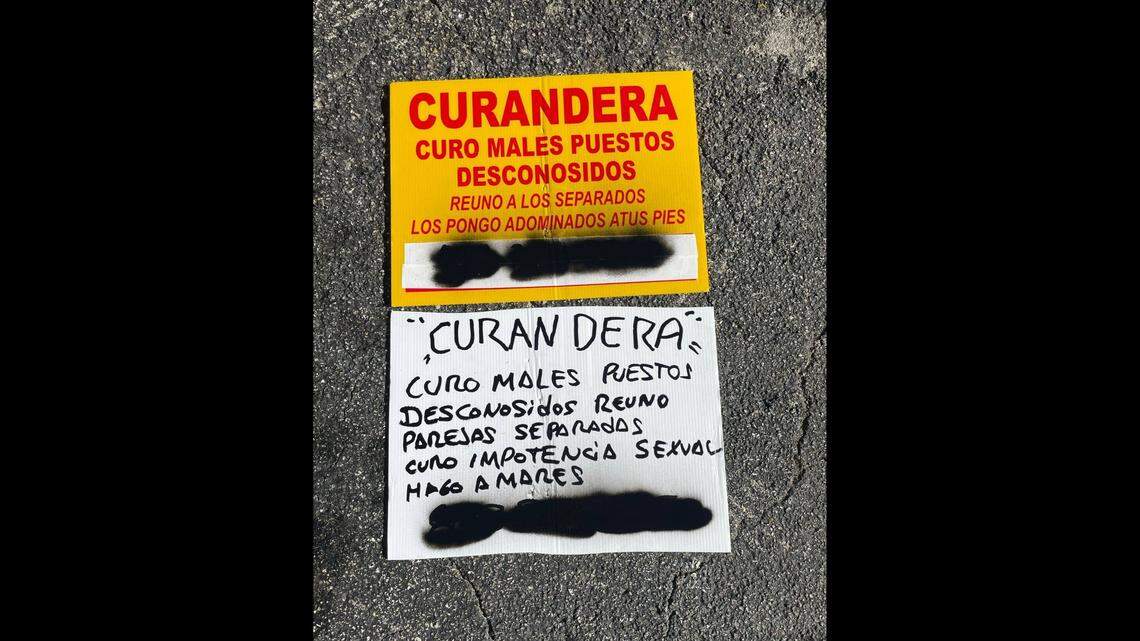 CURANDERA
CURO MALES PUESTOS
DESCONOSIDOS
REUNO A LOS SEPARADOS
LOS PONGO ADOMINADOS ATUS PIES
"CURANDERA"
CURO MALES PUESTOS
DESCONOSIDOS REUNO
PAREJAS SEPARADAS
CURO IMPOTENCIA SEXUAL
HAGO AMARES